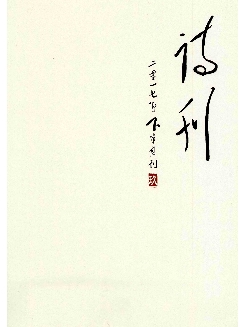 诗刊
二零一七年下半月刊
玖